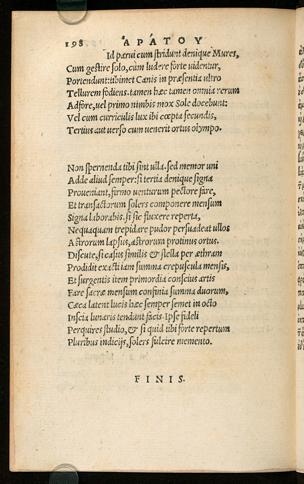 198 ΑΡΑΤΟΥ
Id parui cum stridunt denique Mures,
Cum gestire solo, cum ludere forte uidentur,
Portendunt: tibimet Canis in præsentia ultro
Tellurem fodiens. tamen hæc tamen omnia rerum
Adfore, uel primo nimbis mox Sole docebunt:
Vel cum curriculis lux ibi cœpta secundis,
Tertius aut uerso cum uenerit ortus olympo.
Non spernenda tibi sint ulla. sed memor uni
Adde aliud semper: si tertia denique signa
Proueniant, firmo uenturum pectore fare,
Et transactorum solers componere mensum
Signa laborabis. si sic fluxere reperta,
Nequaquam trepidare pudor persuadeat ullos
Astrorum lapsus, astrorum protinus ortus.
Discute, si casus similis & stella per æthram
Prodidit exacti iam summa crepuscula mensis,
Et surgentis item primordia conscius artis
Fare sacræ mensum confinia summa duorum,
Cæca latent lucis hæc semper semet in octo
Inscia lunaris tendunt facis. Ipse fideli
Perquires studio, & si quid tibi forte repertum
Pluribus indicijs, solers fulcire memento.
FINIS.